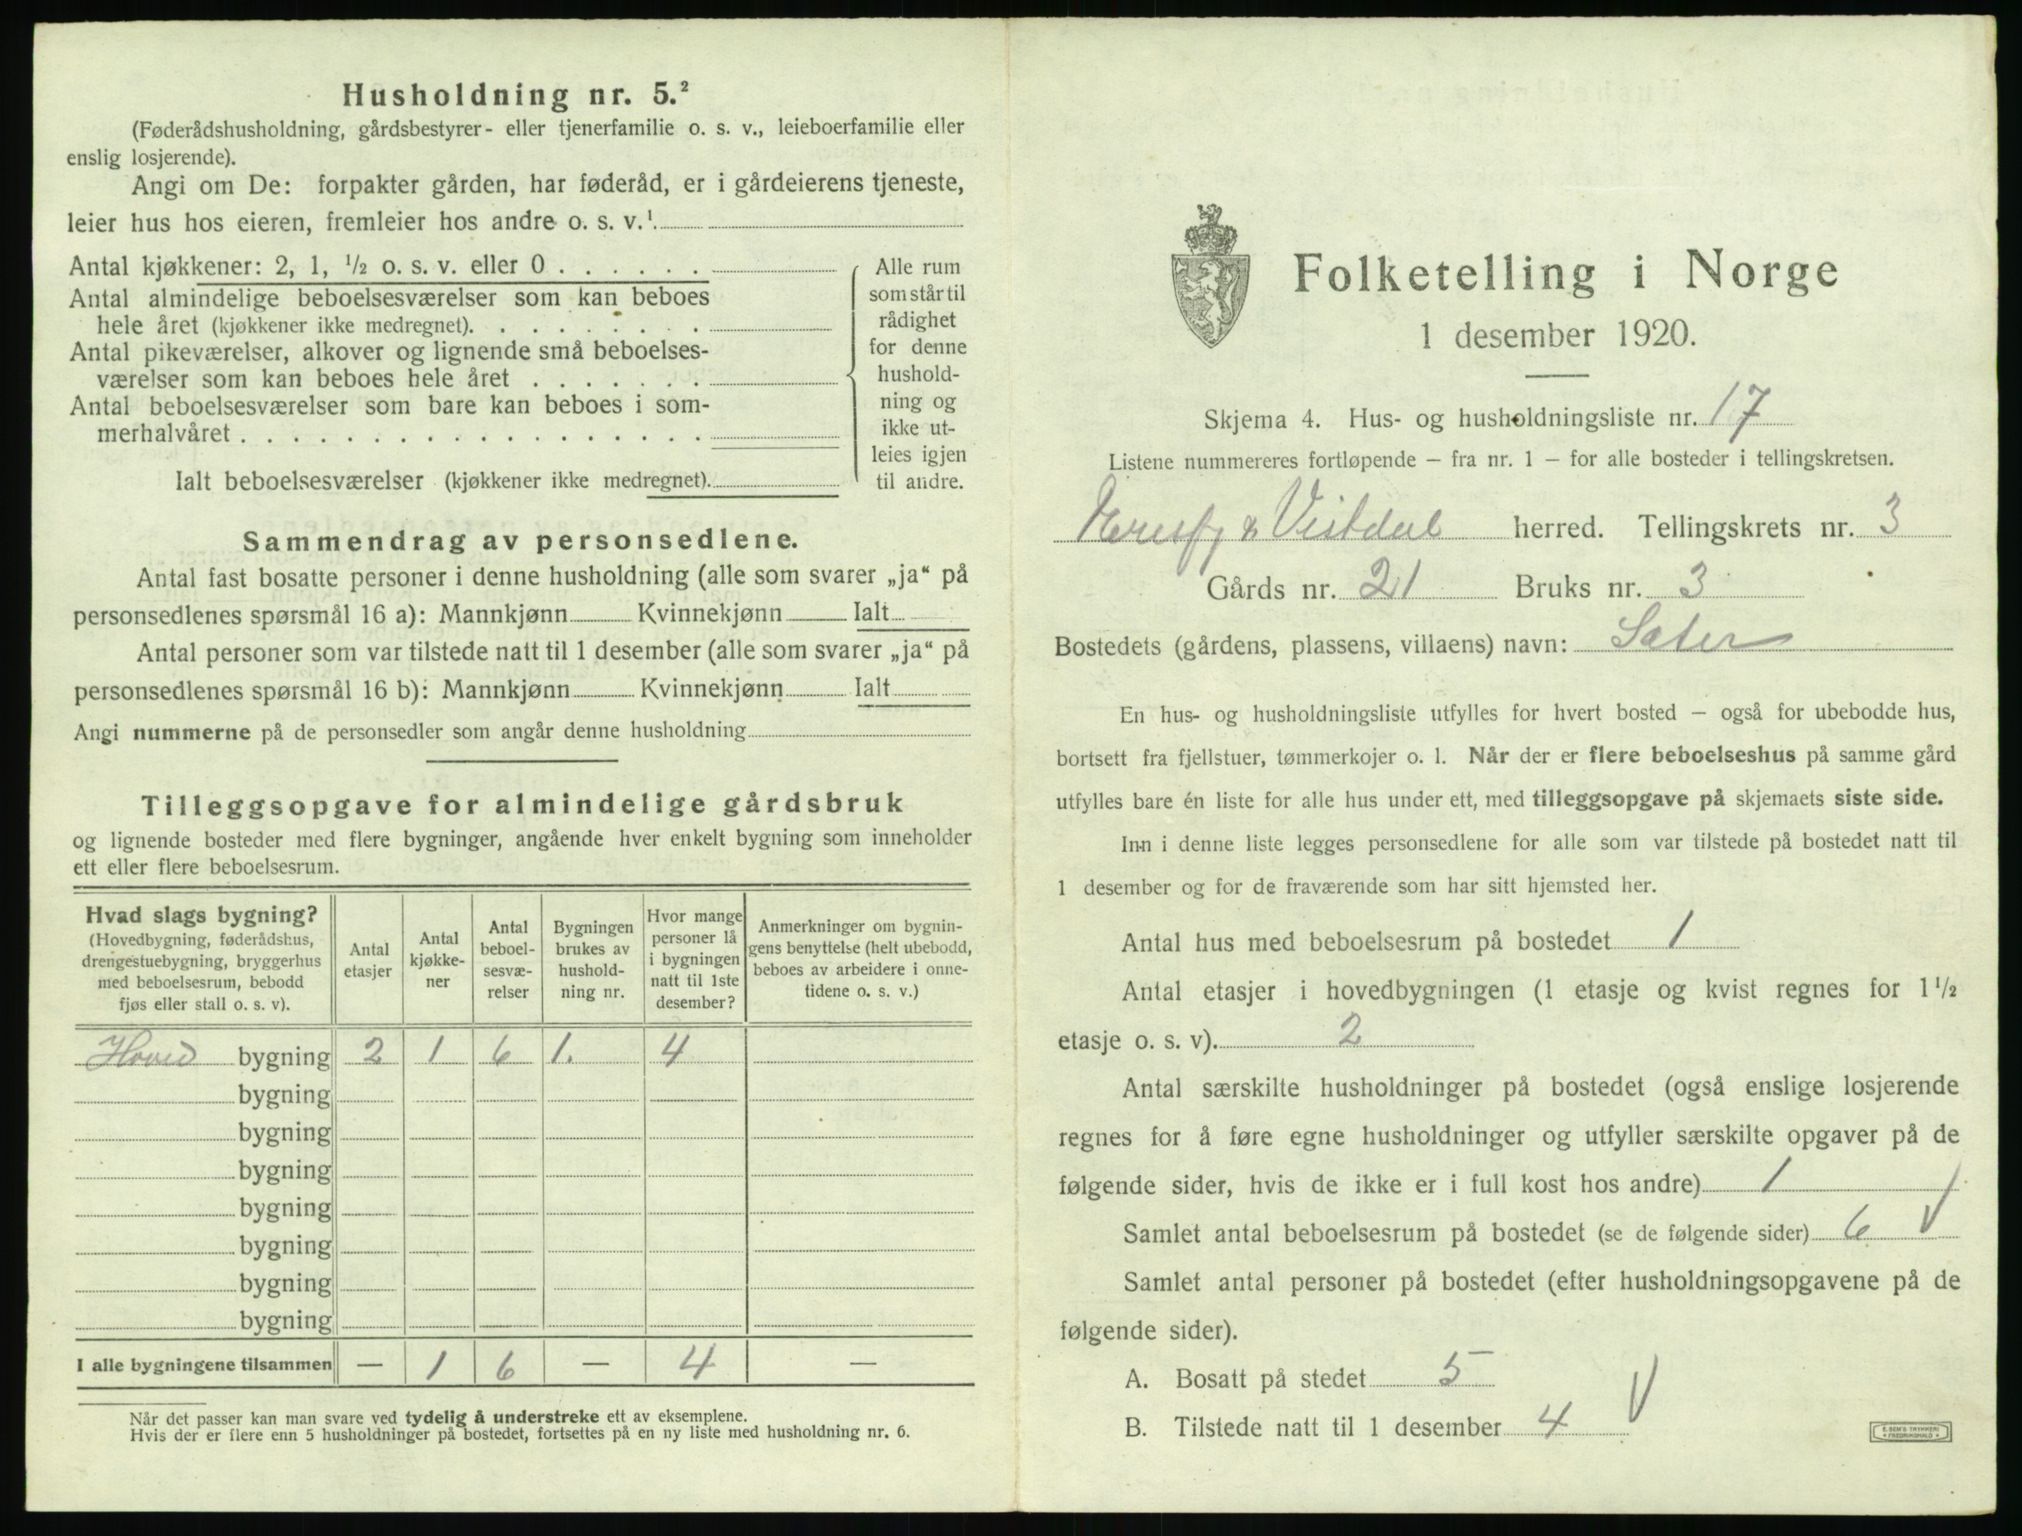 Husholdning nr. 5.²
(Føderådshusholdning, gårdsbestyrer- eller tjenerfamilie o. s. v., leieboerfamilie eller
enslig losjerende).
Angi om De: forpakter gården, har føderåd, er i gårdeierens tjeneste,
leier hus hos eieren, fremleier hos andre o. s. v.¹
Antal kjøkkener: 2, 1, ½ o. s. v. eller 0 . . . . . .
Antal almindelige beboelsesværelser som kan beboes
hele året (kjøkkener ikke medregnet). . . . . . . . .
Antal pikeværelser, alkover og lignende små beboelses-
værelser som kan beboes hele året . . . . . . .
Antal beboelsesværelser som bare kan beboes i som-
merhalvåret . . . . . . . . . . . . . . . . . .
Ialt beboelsesværelser (kjøkkener ikke medregnet).
Alle rum
som står til
rådighet
for denne
hushold-
ning og
ikke ut-
leies igjen
til andre.
Sammendrag av personsedlene.
Antal fast bosatte personer i denne husholdning (alle som svarer „ja“ på
personsedlenes spørsmål 16 a): Mannkjønn Kvinnekjønn Ialt
Antal personer som var tilstede natt til 1 desember (alle som svarer „ja“ på
personsedlenes spørsmål 16 b): Mannkjønn Kvinnekjønn Ialt
Angi nummerne på de personsedler som angår denne husholdning
Tilleggsopgave for almindelige gårdsbruk
og lignende bosteder med flere bygninger, angående hver enkelt bygning som inneholder
ett eller flere beboelsesrum.
Hvad slags bygning?
(Hovedbygning, føderådshus,
drengestuebygning, bryggerhus
med beboelsesrum, bebodd
fjøs eller stall o. s. v).
Antal
etasjer
Antal
kjøkke-
ner
Antal
beboel-
sesvæ-
relser
Bygningen
brukes av
hushold-
ning nr.
Hvor mange
personer lå
i bygningen
natt til 1ste
desember?
Anmerkninger om bygnin-
gens benyttelse (helt ubebodd,
beboes av arbeidere i onne-
tidene o. s. v.)
Hoved bygning 2 1 6 1. 4
bygning
bygning
bygning
bygning
bygning
bygning
bygning
I alle bygningene tilsammen — 1 6 — 4 —
Når det passer kan man svare ved tydelig å understreke ett av eksemplene.
Hvis der er flere enn 5 husholdninger på bostedet, fortsettes på en ny liste med husholdning nr. 6.
Folketelling i Norge
1 desember 1920.
Skjema 4. Hus- og husholdningsliste nr. 17
Listene nummereres fortløpende – fra nr. 1 – for alle bosteder i tellingskretsen.
Eresfj & Vistdal herred. Tellingskrets nr. 3
Gårds nr. 21 Bruks nr. 3
Bostedets (gårdens, plassens, villaens) navn: Sæter
En hus- og husholdningsliste utfylles for hvert bosted – også for ubebodde hus,
bortsett fra fjellstuer, tømmerkojer o. l. Når der er flere beboelseshus på samme gård
utfylles bare én liste for alle hus under ett, med tilleggsopgave på skjemaets siste side.
Inn i denne liste legges personsedlene for alle som var tilstede på bostedet natt til
1 desember og for de fraværende som har sitt hjemsted her.
Antal hus med beboelsesrum på bostedet 1
Antal etasjer i hovedbygningen (1 etasje og kvist regnes for 1½
etasje o. s. v). 2
Antal særskilte husholdninger på bostedet (også enslige losjerende
regnes for å føre egne husholdninger og utfyller særskilte opgaver på de
følgende sider, hvis de ikke er i full kost hos andre) 1
Samlet antal beboelsesrum på bostedet (se de følgende sider) 6
Samlet antal personer på bostedet (efter husholdningsopgavene på de
følgende sider).
A. Bosatt på stedet 5
B. Tilstede natt til 1 desember 4
E. SEM'S TRYKKERI
FREDRIKSHALD